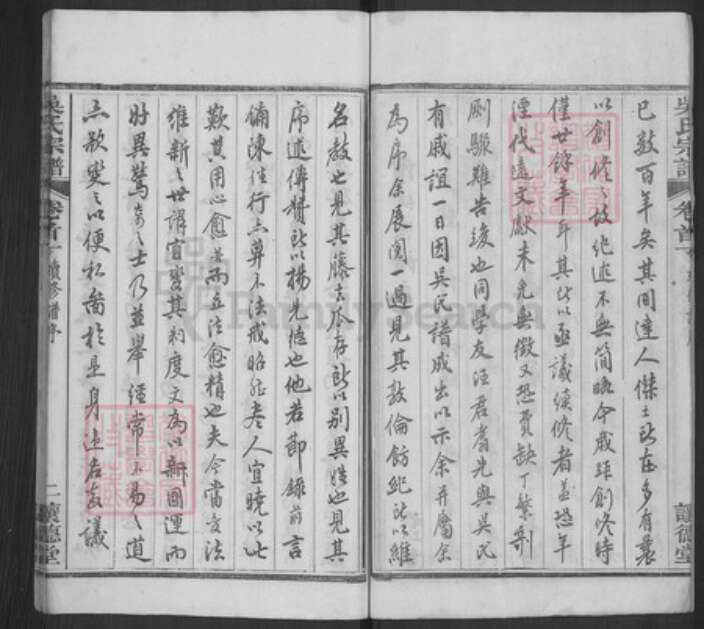 已数百年矣其間達人傑士所在多有曩
以創修之故紀述不無簡略今歲距創修時
僅廿餘年耳其所以亟議續修者蓋恐年
湮代遠文獻未免無徵又恐費缺丁繁剞
劂雖告竣也同學友汪君耆先與吳氏
有戚誼一日因吳氏譜成出以示余并屬余
為序余展閱一過見其敦倫飭紀所以維
名教也見其藤去瓜存所以別異姓也見其
序述傳贊所以揚先德也他若節錄前言
備陳往行六箴不法戒昭然老人宜曉以此
歎其用心愈苦而立法愈精也夫今當變法
維新之世謂宜變其制度文為以新國運而
好異鶩奇之士乃並舉經常不易之道
亦欲變之以便私圖於是身
議
吳氏宗譜
卷首
續修譜序
二
讓德堂
吳氏宗譜
卷首
讓德堂
FamilySearch